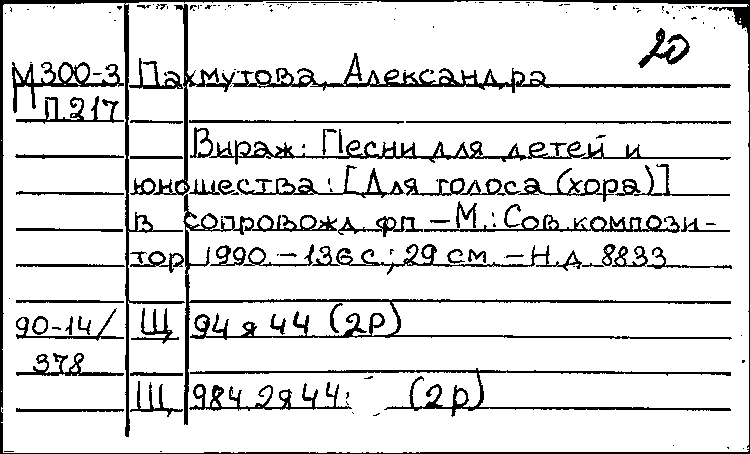 20
М300-3 Пахмутова, Александра
П.217
Вираж: Песни для детей и
юношества: [Для голоса (хора)]
в сопровожд. фп – М.: Сов. компози-
тор, 1990. – 136 с.; 29 см. – Н.д. 8833
90-14/ Щ 94 я 44 (2Р)
378
Щ 984.2я44 (2р)